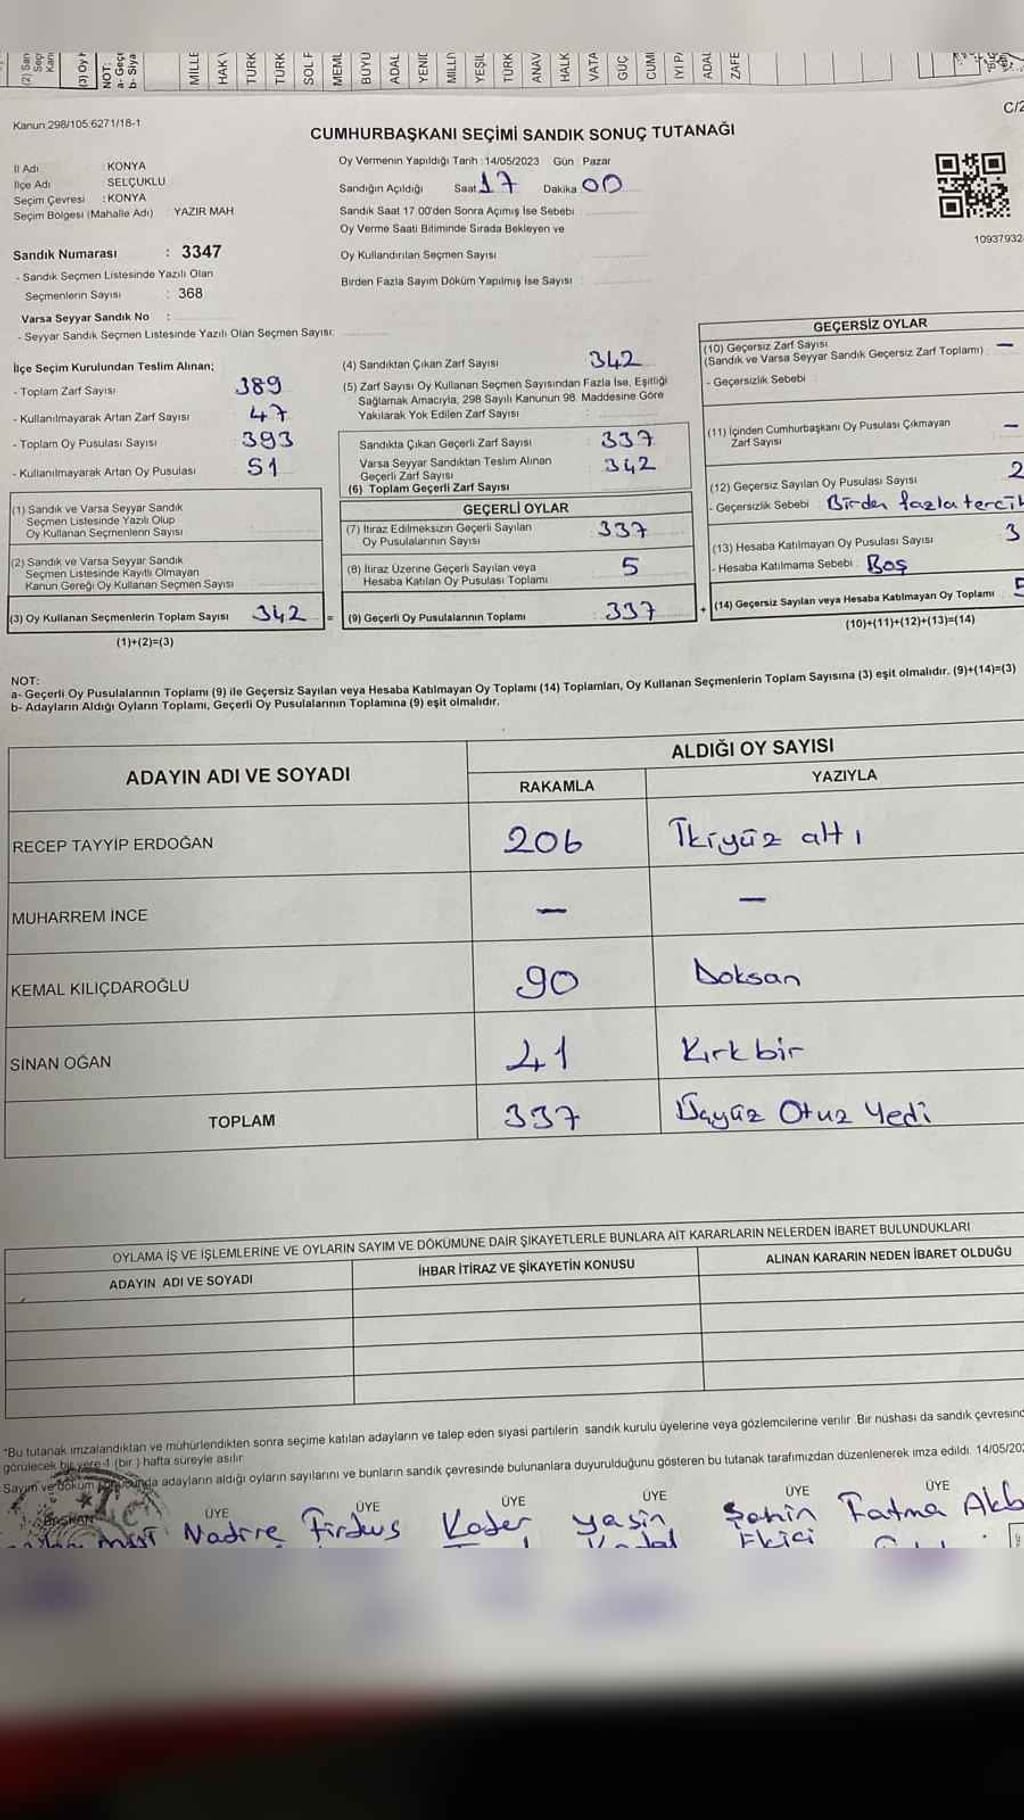 (2) San
Seçr
Kanı
(3) Oy K
NOT:
a- Geçe
b- Siya
MİLLE
HAK
TÜRK
TÜRK
SOL F
MEML
BÜYÜ
ADAL
YENİD
MİLLİ
YEŞİL
TÜRK
ANAV
HALK
VATA
GÜÇ
CUM
İYİ PA
ADAL
ZAFE
Kanun:298/105.6271/18-1
C/2
CUMHURBAŞKANI SEÇİMİ SANDIK SONUÇ TUTANAĞI
İl Adı : KONYA
İlçe Adı : SELÇUKLU
Seçim Çevresi : KONYA
Seçim Bölgesi (Mahalle Adı) : YAZIR MAH
Oy Vermenin Yapıldığı Tarih : 14/05/2023 Gün : Pazar
Sandığın Açıldığı Saat 17 Dakika 00
Sandık Saat 17.00'den Sonra Açılmış İse Sebebi
Oy Verme Saati Bitiminde Sırada Bekleyen ve
Oy Kullandırılan Seçmen Sayısı
Birden Fazla Sayım Döküm Yapılmış İse Sayısı :
10937932
Sandık Numarası : 3347
- Sandık Seçmen Listesinde Yazılı Olan
Seçmenlerin Sayısı : 368
Varsa Seyyar Sandık No :
- Seyyar Sandık Seçmen Listesinde Yazılı Olan Seçmen Sayısı:
İlçe Seçim Kurulundan Teslim Alınan;
- Toplam Zarf Sayısı 389
- Kullanılmayarak Artan Zarf Sayısı 47
- Toplam Oy Pusulası Sayısı 393
- Kullanılmayarak Artan Oy Pusulası 51
(1) Sandık ve Varsa Seyyar Sandık
Seçmen Listesinde Yazılı Olup
Oy Kullanan Seçmenlerin Sayısı
(2) Sandık ve Varsa Seyyar Sandık
Seçmen Listesinde Kayıtlı Olmayan
Kanun Gereği Oy Kullanan Seçmen Sayısı
(3) Oy Kullanan Seçmenlerin Toplam Sayısı 342 =
(1)+(2)=(3)
(4) Sandıktan Çıkan Zarf Sayısı 342
(5) Zarf Sayısı Oy Kullanan Seçmen Sayısından Fazla İse, Eşitliği
Sağlamak Amacıyla, 298 Sayılı Kanunun 98. Maddesine Göre
Yakılarak Yok Edilen Zarf Sayısı :
Sandıkta Çıkan Geçerli Zarf Sayısı 337
Varsa Seyyar Sandıktan Teslim Alınan
Geçerli Zarf Sayısı 342
(6) Toplam Geçerli Zarf Sayısı
GEÇERLİ OYLAR
(7) İtiraz Edilmeksizin Geçerli Sayılan
Oy Pusulalarının Sayısı 337
(8) İtiraz Üzerine Geçerli Sayılan veya
Hesaba Katılan Oy Pusulası Toplamı 5
(9) Geçerli Oy Pusulalarının Toplamı : 337 +
GEÇERSİZ OYLAR
(10) Geçersiz Zarf Sayısı
(Sandık ve Varsa Seyyar Sandık Geçersiz Zarf Toplamı) —
- Geçersizlik Sebebi
(11) İçinden Cumhurbaşkanı Oy Pusulası Çıkmayan
Zarf Sayısı —
(12) Geçersiz Sayılan Oy Pusulası Sayısı 2
- Geçersizlik Sebebi Birden fazla tercih
(13) Hesaba Katılmayan Oy Pusulası Sayısı 3
- Hesaba Katılmama Sebebi Boş
(14) Geçersiz Sayılan veya Hesaba Katılmayan Oy Toplamı 5
(10)+(11)+(12)+(13)=(14)
NOT:
a- Geçerli Oy Pusulalarının Toplamı (9) ile Geçersiz Sayılan veya Hesaba Katılmayan Oy Toplamı (14) Toplamları, Oy Kullanan Seçmenlerin Toplam Sayısına (3) eşit olmalıdır. (9)+(14)=(3)
b- Adayların Aldığı Oyların Toplamı, Geçerli Oy Pusulalarının Toplamına (9) eşit olmalıdır.
ADAYIN ADI VE SOYADI
ALDIĞI OY SAYISI
RAKAMLA YAZIYLA
RECEP TAYYİP ERDOĞAN 206 İkiyüz altı
MUHARREM İNCE — —
KEMAL KILIÇDAROĞLU 90 Doksan
SİNAN OĞAN 41 Kırk bir
TOPLAM 337 Üçyüz Otuz Yedi
OYLAMA İŞ VE İŞLEMLERİNE VE OYLARIN SAYIM VE DÖKÜMÜNE DAİR ŞİKAYETLERLE BUNLARA AİT KARARLARIN NELERDEN İBARET BULUNDUKLARI
ADAYIN ADI VE SOYADI İHBAR İTİRAZ VE ŞİKAYETİN KONUSU ALINAN KARARIN NEDEN İBARET OLDUĞU
"Bu tutanak imzalandıktan ve mühürlendikten sonra seçime katılan adayların ve talep eden siyasi partilerin sandık kurulu üyelerine veya gözlemcilerine verilir. Bir nüshası da sandık çevresinc
görülecek bir yere 1 (bir ) hafta süreyle asılır
Sayım ve döküm sonucunda adayların aldığı oyların sayılarını ve bunların sandık çevresinde bulunanlara duyurulduğunu gösteren bu tutanak tarafımızdan düzenlenerek imza edildi. 14/05/202
BAŞKAN ÜYE ÜYE ÜYE ÜYE ÜYE ÜYE
Nadire Firdevs Kader Yasin Şahin Fatma Akb
Ekici